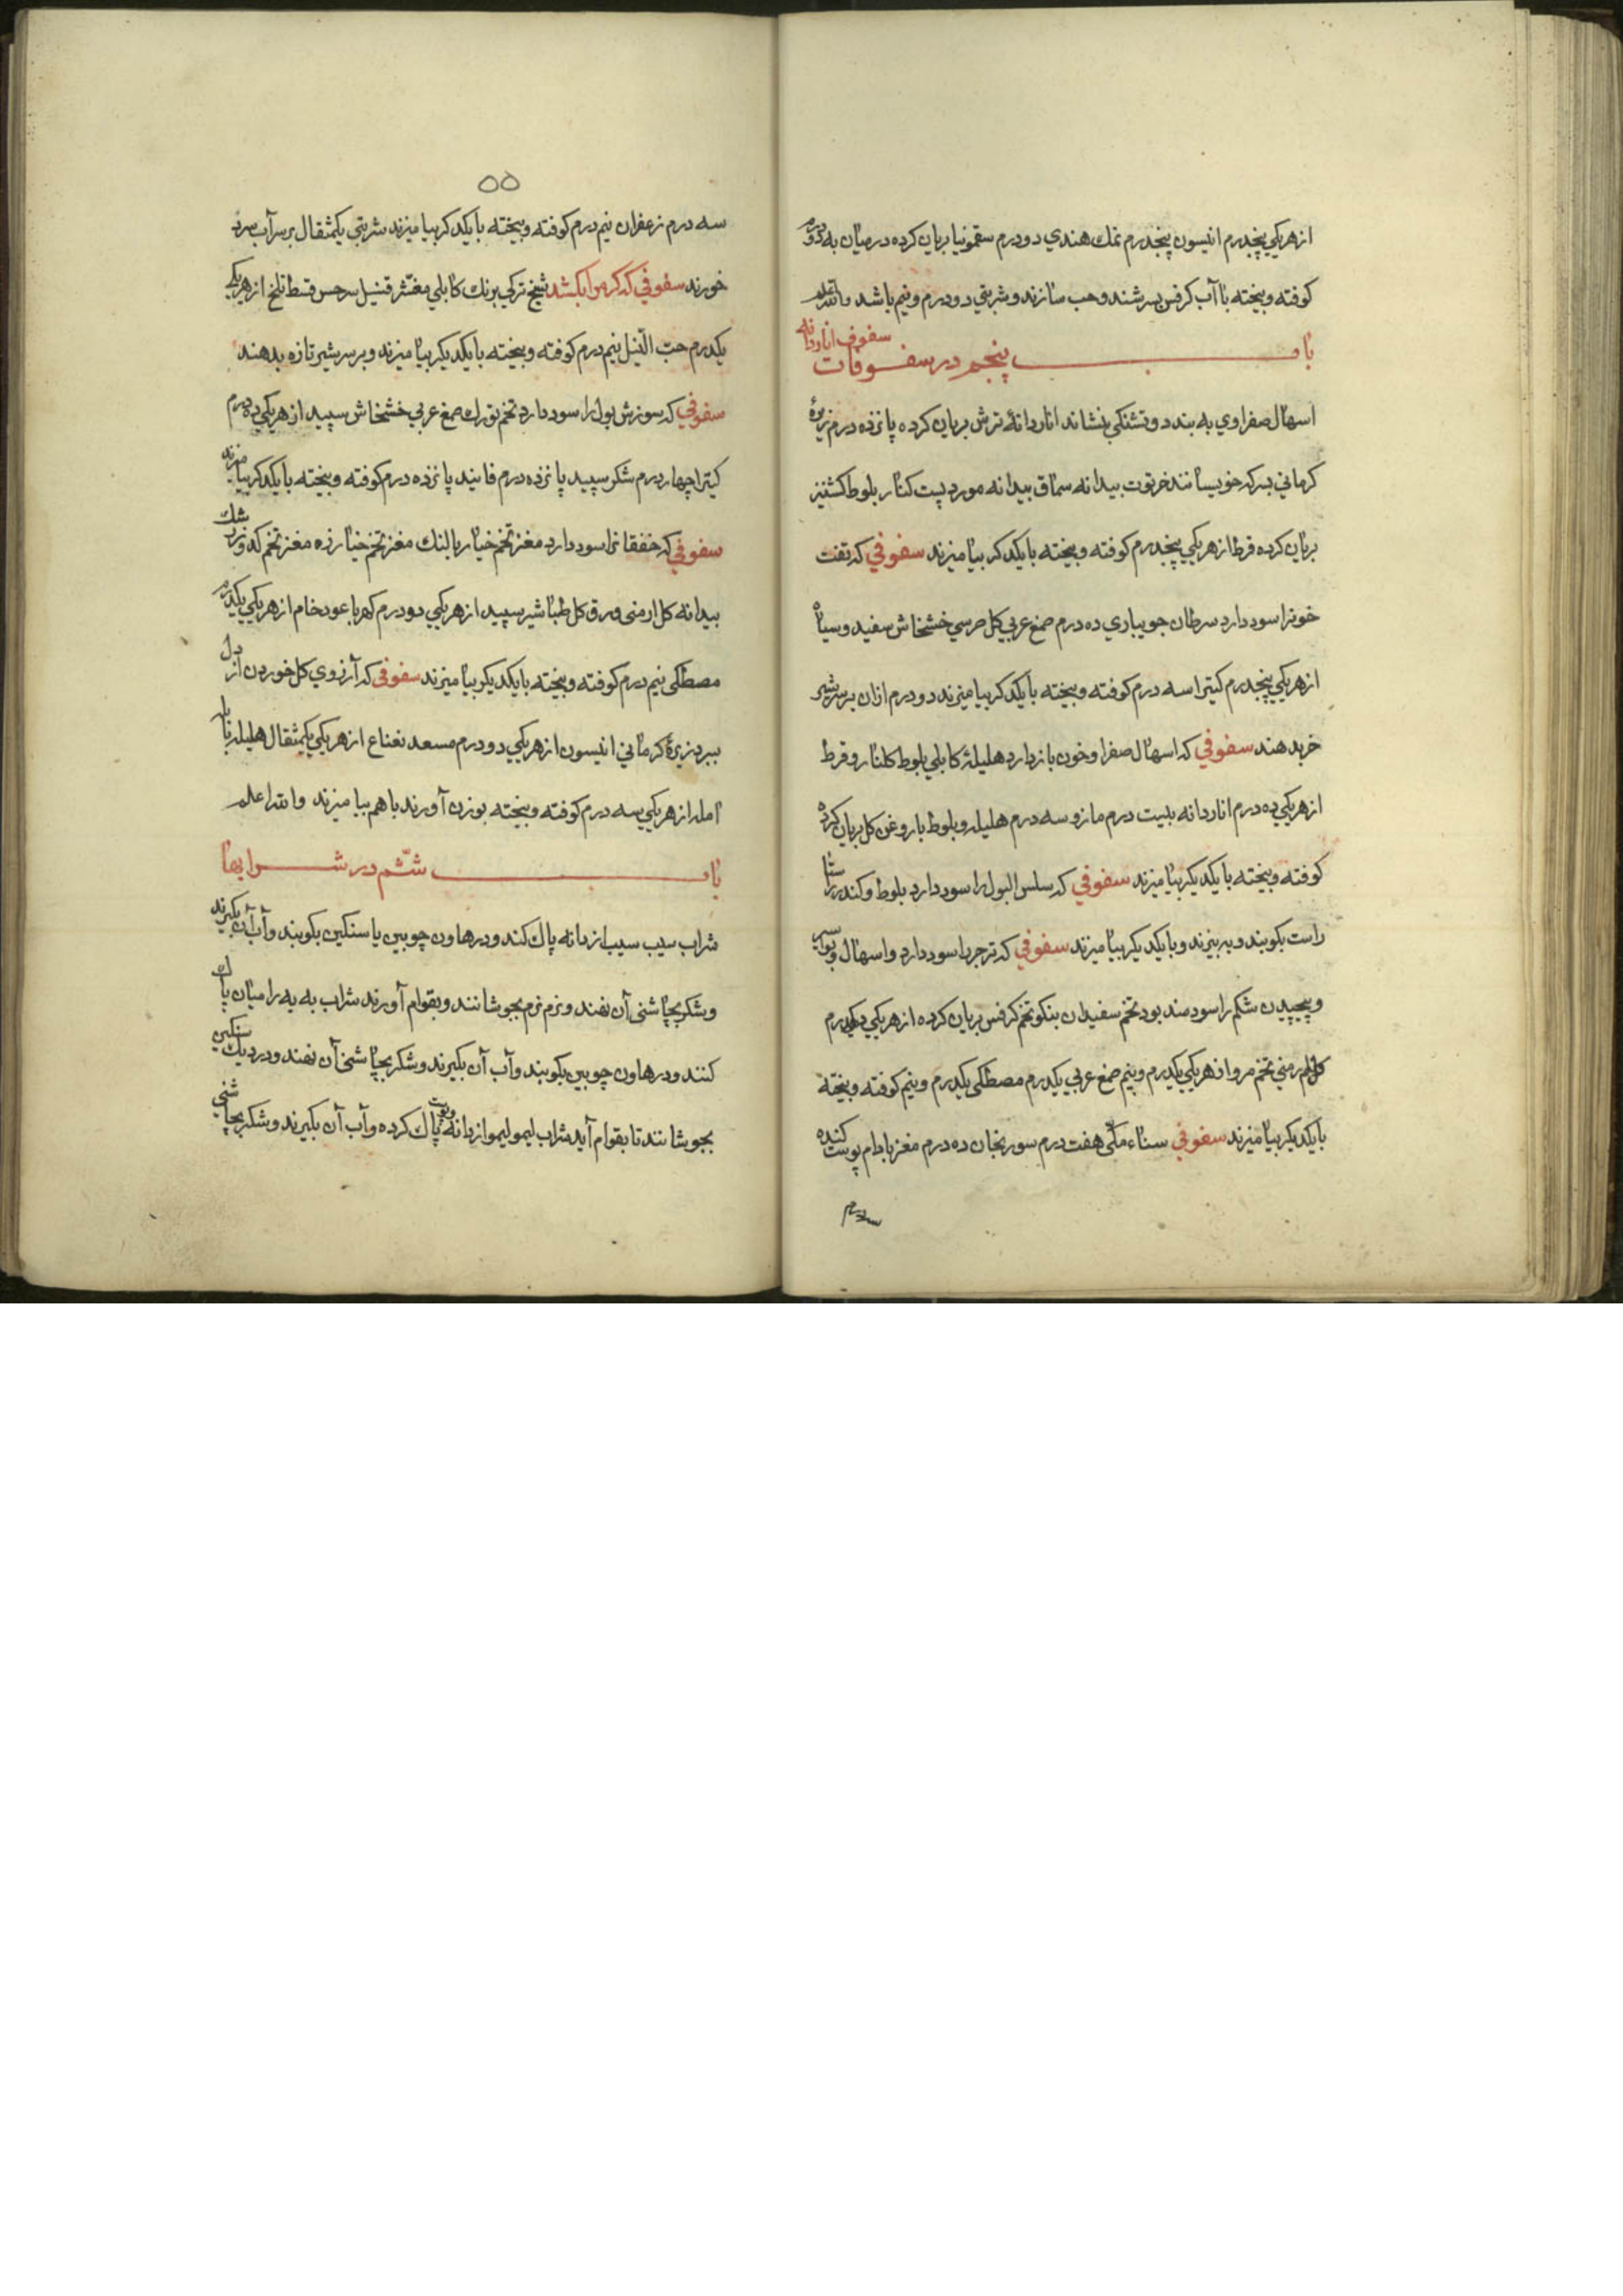 از هریکي پنجدرم انیسون پنجدرم نمك هندي دودرم سقمونیا بریان کرده در میان به دودرم
کوفته و بیخته باآب کرفس بسرشند و حب سازند و شربتي دودرم و نیم باشد والله اعلم
باب پنجم در سفوفات سفوف اناردانه
اسهال صفراوي به بندد و تشنکي بنشاند اناردانۀ ترش بریان کرده پانزده درم زیرۀ
کرماني بسرکه خویسانند خرنوب بیدانه سماق بیدانه مورد پست کنار بلوط کشنیز
بریان کرده قرط از هریکي پنجدرم کوفته و بیخته بایکدکر بیامیزند سفوفي که تفت
خونرا سود دارد سرطان جویباري ده درم صمغ عربي کل خشخاش سفید و سیاه
از هریکي پنجدرم کتیرا سه درم کوفته و بیخته بایکدکر بیامیزند دودرم ازان بر سر شیر
خر بدهند سفوفي که اسهال صفرا و خون بازدارد هلیلۀ کابلي بلوط کلنار و قرط
از هریکي ده درم اناردانه بیست درم مازو سه درم هلیله و بلوط باروغن کل بریان کرده
کوفته و بیخته بایکدیکر بیامیزند سفوفي که سلس البول را سود دارد بلوط و کندر راستا
راست بکوبند و به بیزند و بایکدیکر بیامیزند سفوفي که زحیر را سود دارد و اسهال و بواسیر
و پیچیدن شکم را سودمند بود تخم سفیدان بنکو تخم کرفس بریان کرده از هریکي
کل ارمني تخم مرو از هریکي یکدرم و نیم صمغ عربي یکدرم مصطکي یکدرم و نیم کوفته و بیخته
بایکدیکر بیامیزند سفوفي سناء مکي هفت درم سورنجان ده درم مغز بادام پوست کنده
سه درم
۵۵
سه درم زعفران نیم درم کوفته و بیخته بایکدکر بیامیزند شربتي یکمثقال بر سر آب سرد
خورند سفوفي که کرمرا بکشد شیخ ترکي برنك کابلي مقشر قنبیل سرخس قسط تلخ از هریکي
یکدرم حب النیل نیم درم کوفته و بیخته بایکدیکر بیامیزند و بر سر شیر تازه بدهند
سفوفي که سوزش بول را سود دارد تخم تورك صمغ عربي خشخاش سپید از هریکي ده درم
کتیرا چهار درم شکر سپید پانزده درم فانید پانزده درم کوفته و بیخته بایکدکر بیامیزند
سفوفي که خفقانرا سود دارد مغز تخم خیار بالنك مغز تخم خیارزه مغز تخم کدو زرشك
بیدانه کل ارمني ورق کل طباشیر سپید از هریکي دودرم کهربا عود خام از هریکي یکدرم
مصطکي نیم درم کوفته و بیخته بایکدیکر بیامیزند سفوفي که آرزوي کل خوردن از دل
ببرد زیرۀ کرماني انیسون از هریکي دودرم سعد نعناع از هریکي یکمثقال هلیله
آمله از هریکي سه درم کوفته و بیخته بوزن آورند باهم بیامیزند والله اعلم
باب ششم در شرابها
شراب سیب سیب از دانه پاك کنند و در هاون چوبین یا سنکین بکوبند و آب آن بکیرند
و شکر بچاشني آن نهند و نرم نرم بجوشانند و بقوام آورند شراب به به را میان پاك
کنند و در هاون چوبین بکوبند و آب آن بکیرند و شکر بچاشني آن نهند و در دیك سنکین
بجوشانند تا بقوام آید شراب لیمو لیمو از دانه و پوست پاك کرده و آب آن بکیرند و شکر بچاشني